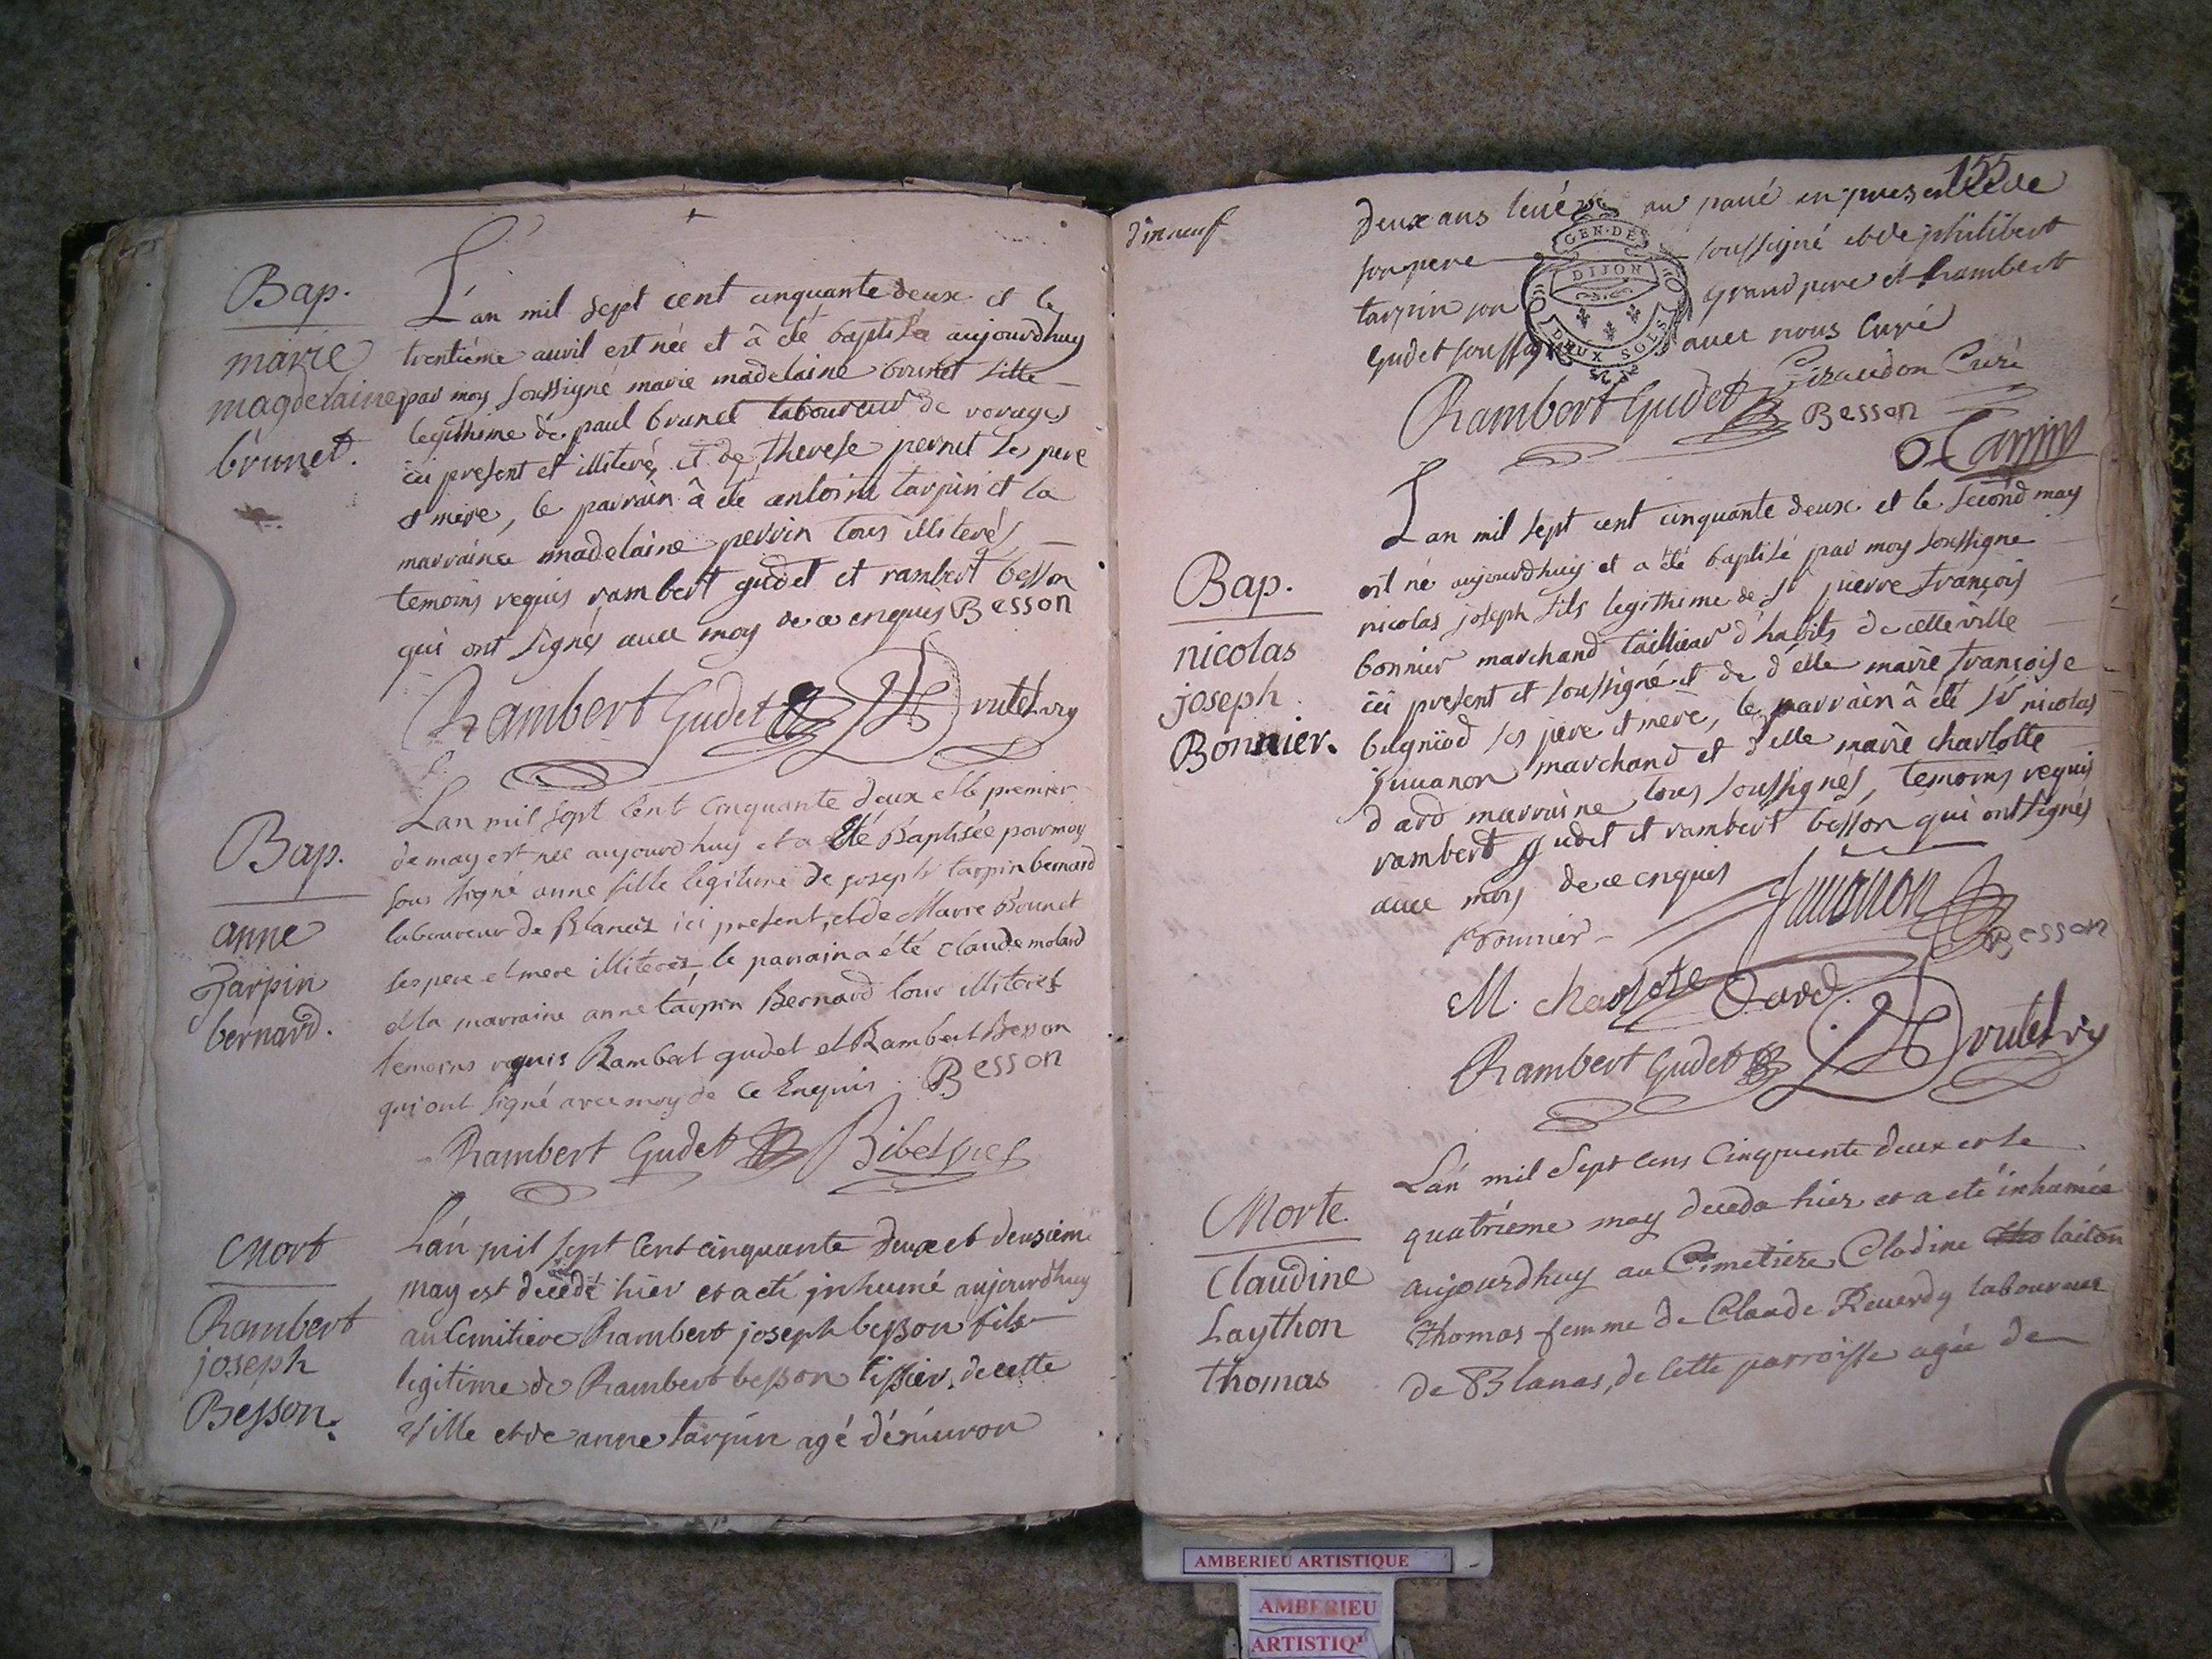 Bap.
marie
magdelaine
brunet.
L'an mil sept cent cinquante deux et le
trentiéme avril est née et â eté baptisée aujourdhuy
par moy soussigné marie madelaine brunet fille
legithime de paul brunet laboureur de vorages
ici present et illiteré, et de therese pernet ses pere
et mere, le parrain â eté antoine tarpin et la
marraine madelaine perrin tous illiterés
temoins requis rambert gudet et rambert besson
qui ont signés avec moy de ce enquis Besson
Rambert Gudet Drutel vic
Bap.
anne
Tarpin
bernard.
Lan mil sept Cent Cinquante deux et le premier
de may est née aujourdhuy et a Eté Baptisée par moy
sous signé anne fille legitime de joseph tarpin bernard
laboureur de Blanaz ici present, et de Marie Brunet
ses pere et mere illiterés, le parrain a été Claude molard
et la marraine anne tarpin Bernard tous illiterés
temoins requis Rambert gudet et Rambert Besson
qui ont signé avec moy de Ce Enquis. Besson
Rambert Gudet
Mort
Rambert
joseph
Besson.
Lán mil sept Cent cinquante deux et deusiem
may est decedé hier et a eté inhumé aujourdhuy
au Cemitiere Rambert joseph besson fils
legitime de Rambert besson tissier, de cette
ville et de anne tarpin agé d'environ
155
dixneuf
deux ans levée au pavé en presence de
son pere soussigné et de philibert
tarpin son grand pere et Rambert
Gudet soussigné avec nous Curé
GEN·DE
DIJON
DEUX SOLS
Giraudon Curé
Rambert Gudet Besson
Tarpin
Bap.
nicolas
joseph
Bonnier.
Lan mil sept cent cinquante deux et le second may
est né aujourdhuy et a eté baptisé par moy soussigne
nicolas joseph fils legithime de sr pierre françois
bonnier marchand tailleur d'habits de cette ville
ici present et soussigné et de d'elle marie françoise
ses pere et mere, le parrain â eté sr nicolas
juvanon marchand et d'elle marie charlotte
dard marraine tous soussignés, temoins requis
rambert gudet et rambert besson qui ont signés
avec moy de ce enquis Juvanon
Bonnier Besson
M. charlote Dard
Rambert Gudet Drutel vic
Morte.
Claudine
Laython
thomas
Lán mil Sept Cens Cinquante deux et le
quatriéme may deceda hier et a eté inhumée
aujourdhuy au Cimetiere Clodine tho laiton
thomas femme de Claude Reverdy laboureur
de Blanas, de Cette parroisse agée de
AMBERIEU ARTISTIQUE
AMBERIEU
ARTISTIQ